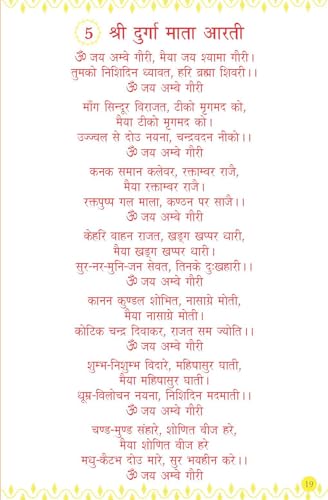 5 श्री दुर्गा माता आरती
ॐ जय अम्बे गौरी, मैया जय श्यामा गौरी।
तुमको निशिदिन ध्यावत, हरि ब्रह्मा शिवरी।।
ॐ जय अम्बे गौरी
माँग सिन्दूर विराजत, टीको मृगमद को,
मैया टीको मृगमद को।
उज्ज्वल से दोउ नयना, चन्द्रवदन नीको।।
ॐ जय अम्बे गौरी
कनक समान कलेवर, रक्ताम्बर राजै,
मैया रक्ताम्बर राजै।
रक्तपुष्प गल माला, कण्ठन पर साजै।।
ॐ जय अम्बे गौरी
केहरि वाहन राजत, खड्ग खप्पर धारी,
मैया खड्ग खप्पर धारी।
सुर-नर-मुनि-जन सेवत, तिनके दुःखहारी।।
ॐ जय अम्बे गौरी
कानन कुण्डल शोभित, नासाग्रे मोती,
मैया नासाग्रे मोती।
कोटिक चन्द्र दिवाकर, राजत सम ज्योति।।
ॐ जय अम्बे गौरी
शुम्भ-निशुम्भ विदारे, महिषासुर घाती,
मैया महिषासुर घाती।
धूम्र-विलोचन नयना, निशिदिन मदमाती।।
ॐ जय अम्बे गौरी
चण्ड-मुण्ड संहारे, शोणित बीज हरे,
मैया शोणित बीज हरे,
मधु-कैटभ दोउ मारे, सुर भयहीन करे।।
ॐ जय अम्बे गौरी
19